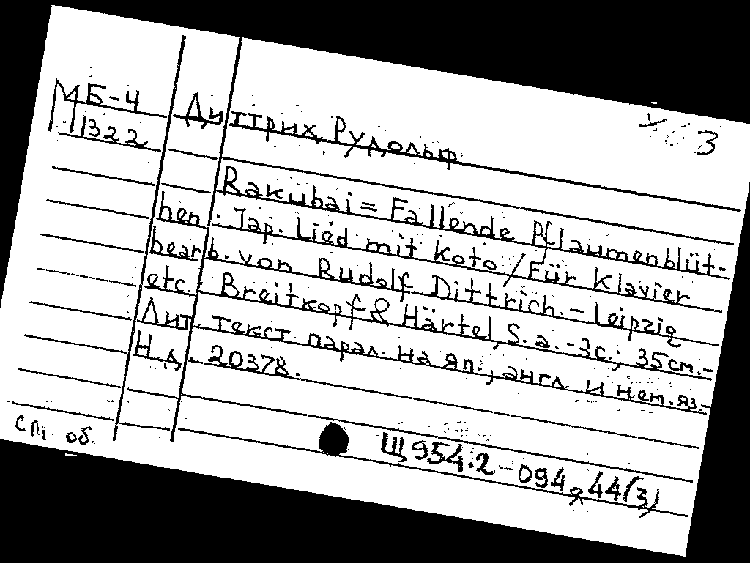 МБ-4
11322
Диттрих, Рудольф
Rakubai = Fallende Pflaumenblüt-
hen : Jap. Lied mit Koto / Für Klavier
bearb. von Rudolf Dittrich. - Leipzig
etc.: Breitkopf & Härtel, S. a. - 3с.; 35см. -
Лит. текст парал. на яп., англ. и нем. яз. -
Н. д. 20378.
Щ954.2-094я44(3)
об.